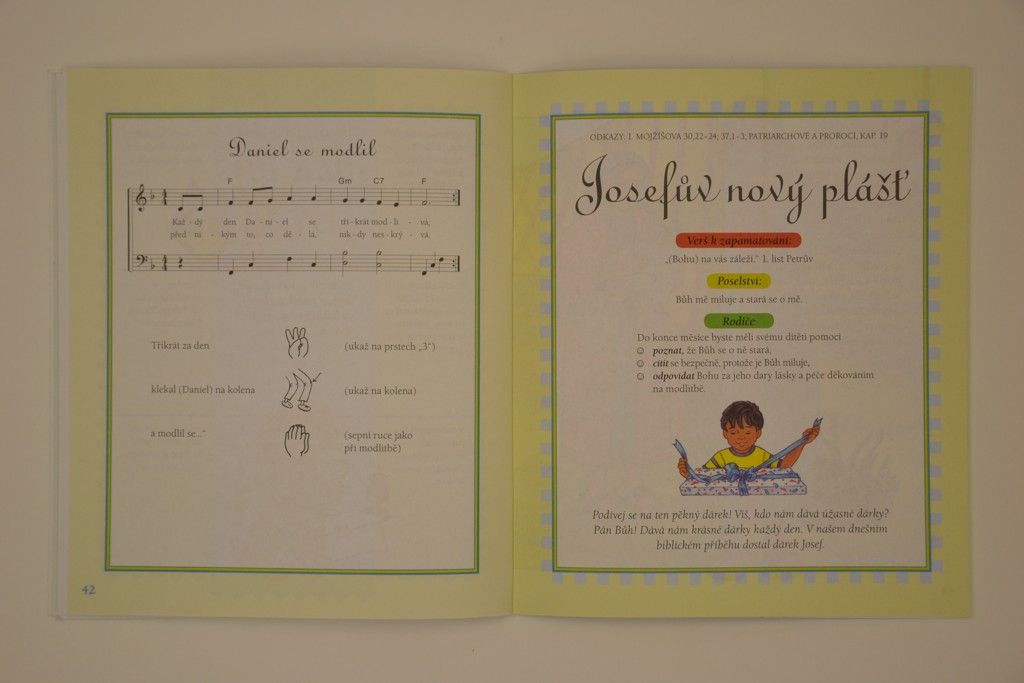 Daniel se modlil
F Gm C7 F
Kaž - dý den Da - ni - el se tři - krát mod - li - vá,
před ni - kým to, co dě - lá, nik - dy nes - krý - vá.
Třikrát za den (ukaž na prstech „3“)
klekal (Daniel) na kolena (ukaž na kolena)
a modlil se...“ (sepni ruce jako
při modlitbě)
42
ODKAZY: 1. MOJŽÍŠOVA 30,22-24; 37,1-3; PATRIARCHOVÉ A PROROCI, KAP. 19
Josefův nový plášť
Verš k zapamatování:
„(Bohu) na vás záleží.“ 1. list Petrův
Poselství:
Bůh mě miluje a stará se o mě.
Rodiče
Do konce měsíce byste měli svému dítěti pomoci
poznat, že Bůh se o ně stará,
cítit se bezpečně, protože je Bůh miluje,
odpovídat Bohu za jeho dary lásky a péče děkováním
na modlitbě.
Podívej se na ten pěkný dárek! Víš, kdo nám dává úžasné dárky?
Pán Bůh! Dává nám krásné dárky každý den. V našem dnešním
biblickém příběhu dostal dárek Josef.